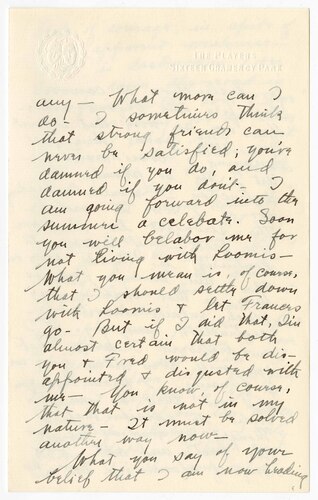 THE PLAYERS
SIXTEEN GRAMERCY PARK
any — What more can I
do — I sometimes think
that strong friends can
never be satisfied; you're
damned if you do, and
damned if you don't — I
am going forward into the
summer a celebate. Soon
you will belabor me for
not living with Loomis —
What you mean is, of course,
that I should settle down
with Loomis & let Frances
go — But if I did that, I'm
almost certain that both
you & Fred would be dis-
appointed & disgusted with
me — You know, of course,
that that is not in my
nature — It must be solved
another way now —
What you say of your
belief that I am now heading